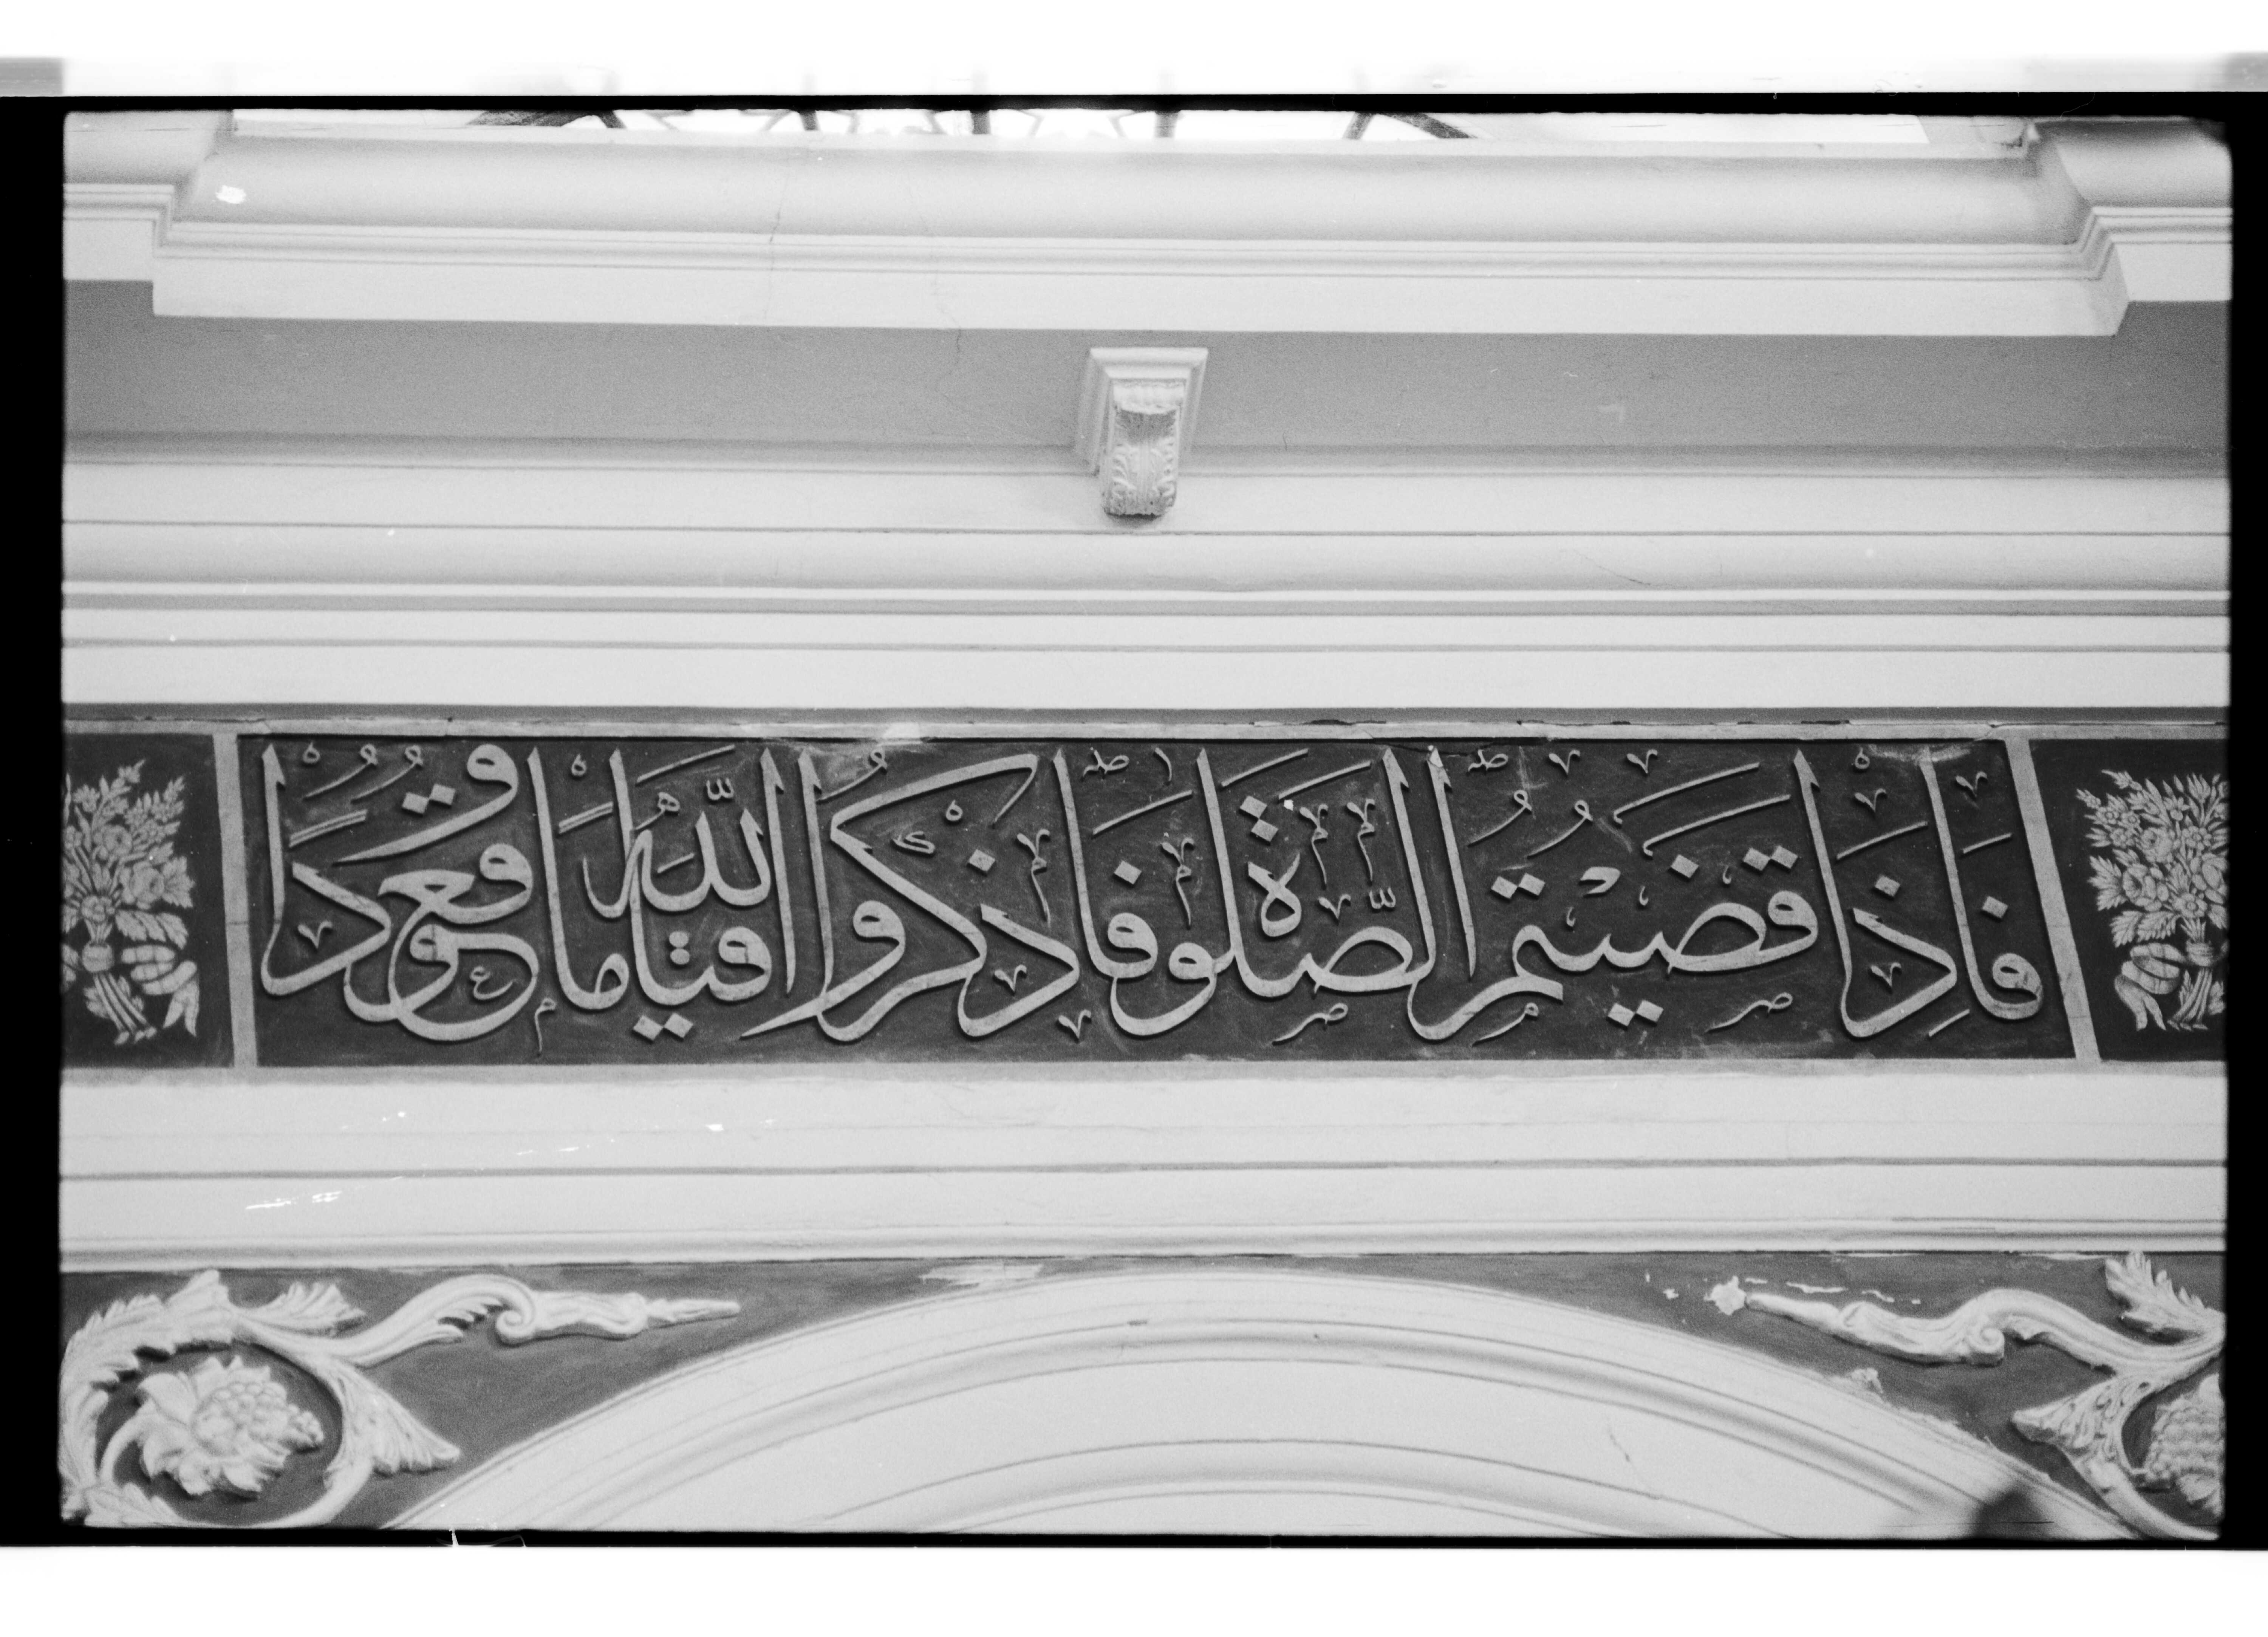 فَاِذَا قَضَيْتُمُ الصَّلٰوةَ فَاذْكُرُوا اللّٰهَ قِيَامًا وَقُعُودًا